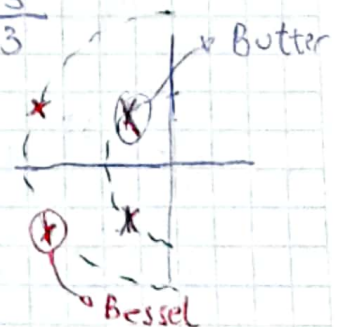 3
Butter
Bessel